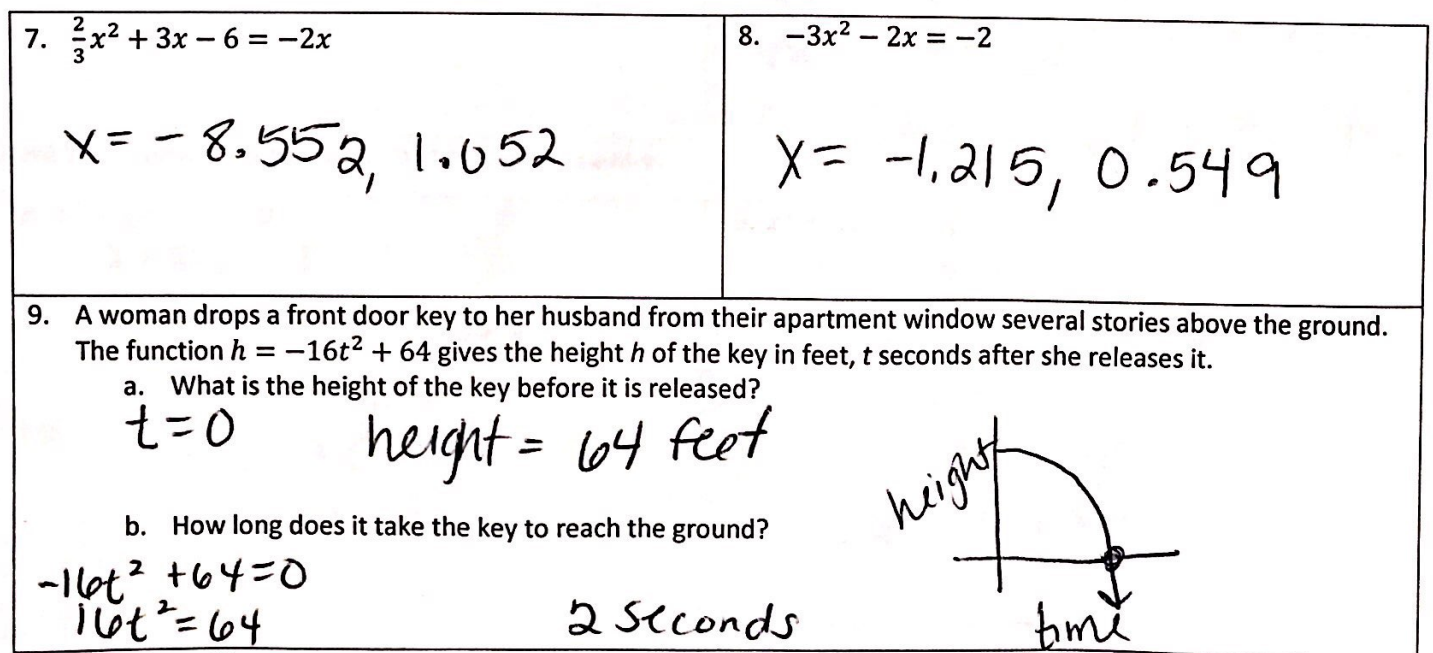 7. 2/3x² + 3x − 6 = −2x
x = -8.552, 1.052
8. −3x² − 2x = −2
x = -1.215, 0.549
9. A woman drops a front door key to her husband from their apartment window several stories above the ground.
The function h = −16t² + 64 gives the height h of the key in feet, t seconds after she releases it.
a. What is the height of the key before it is released?
t=0 height = 64 feet
height
b. How long does it take the key to reach the ground?
-16t² +64=0
16t²=64
2 seconds
time